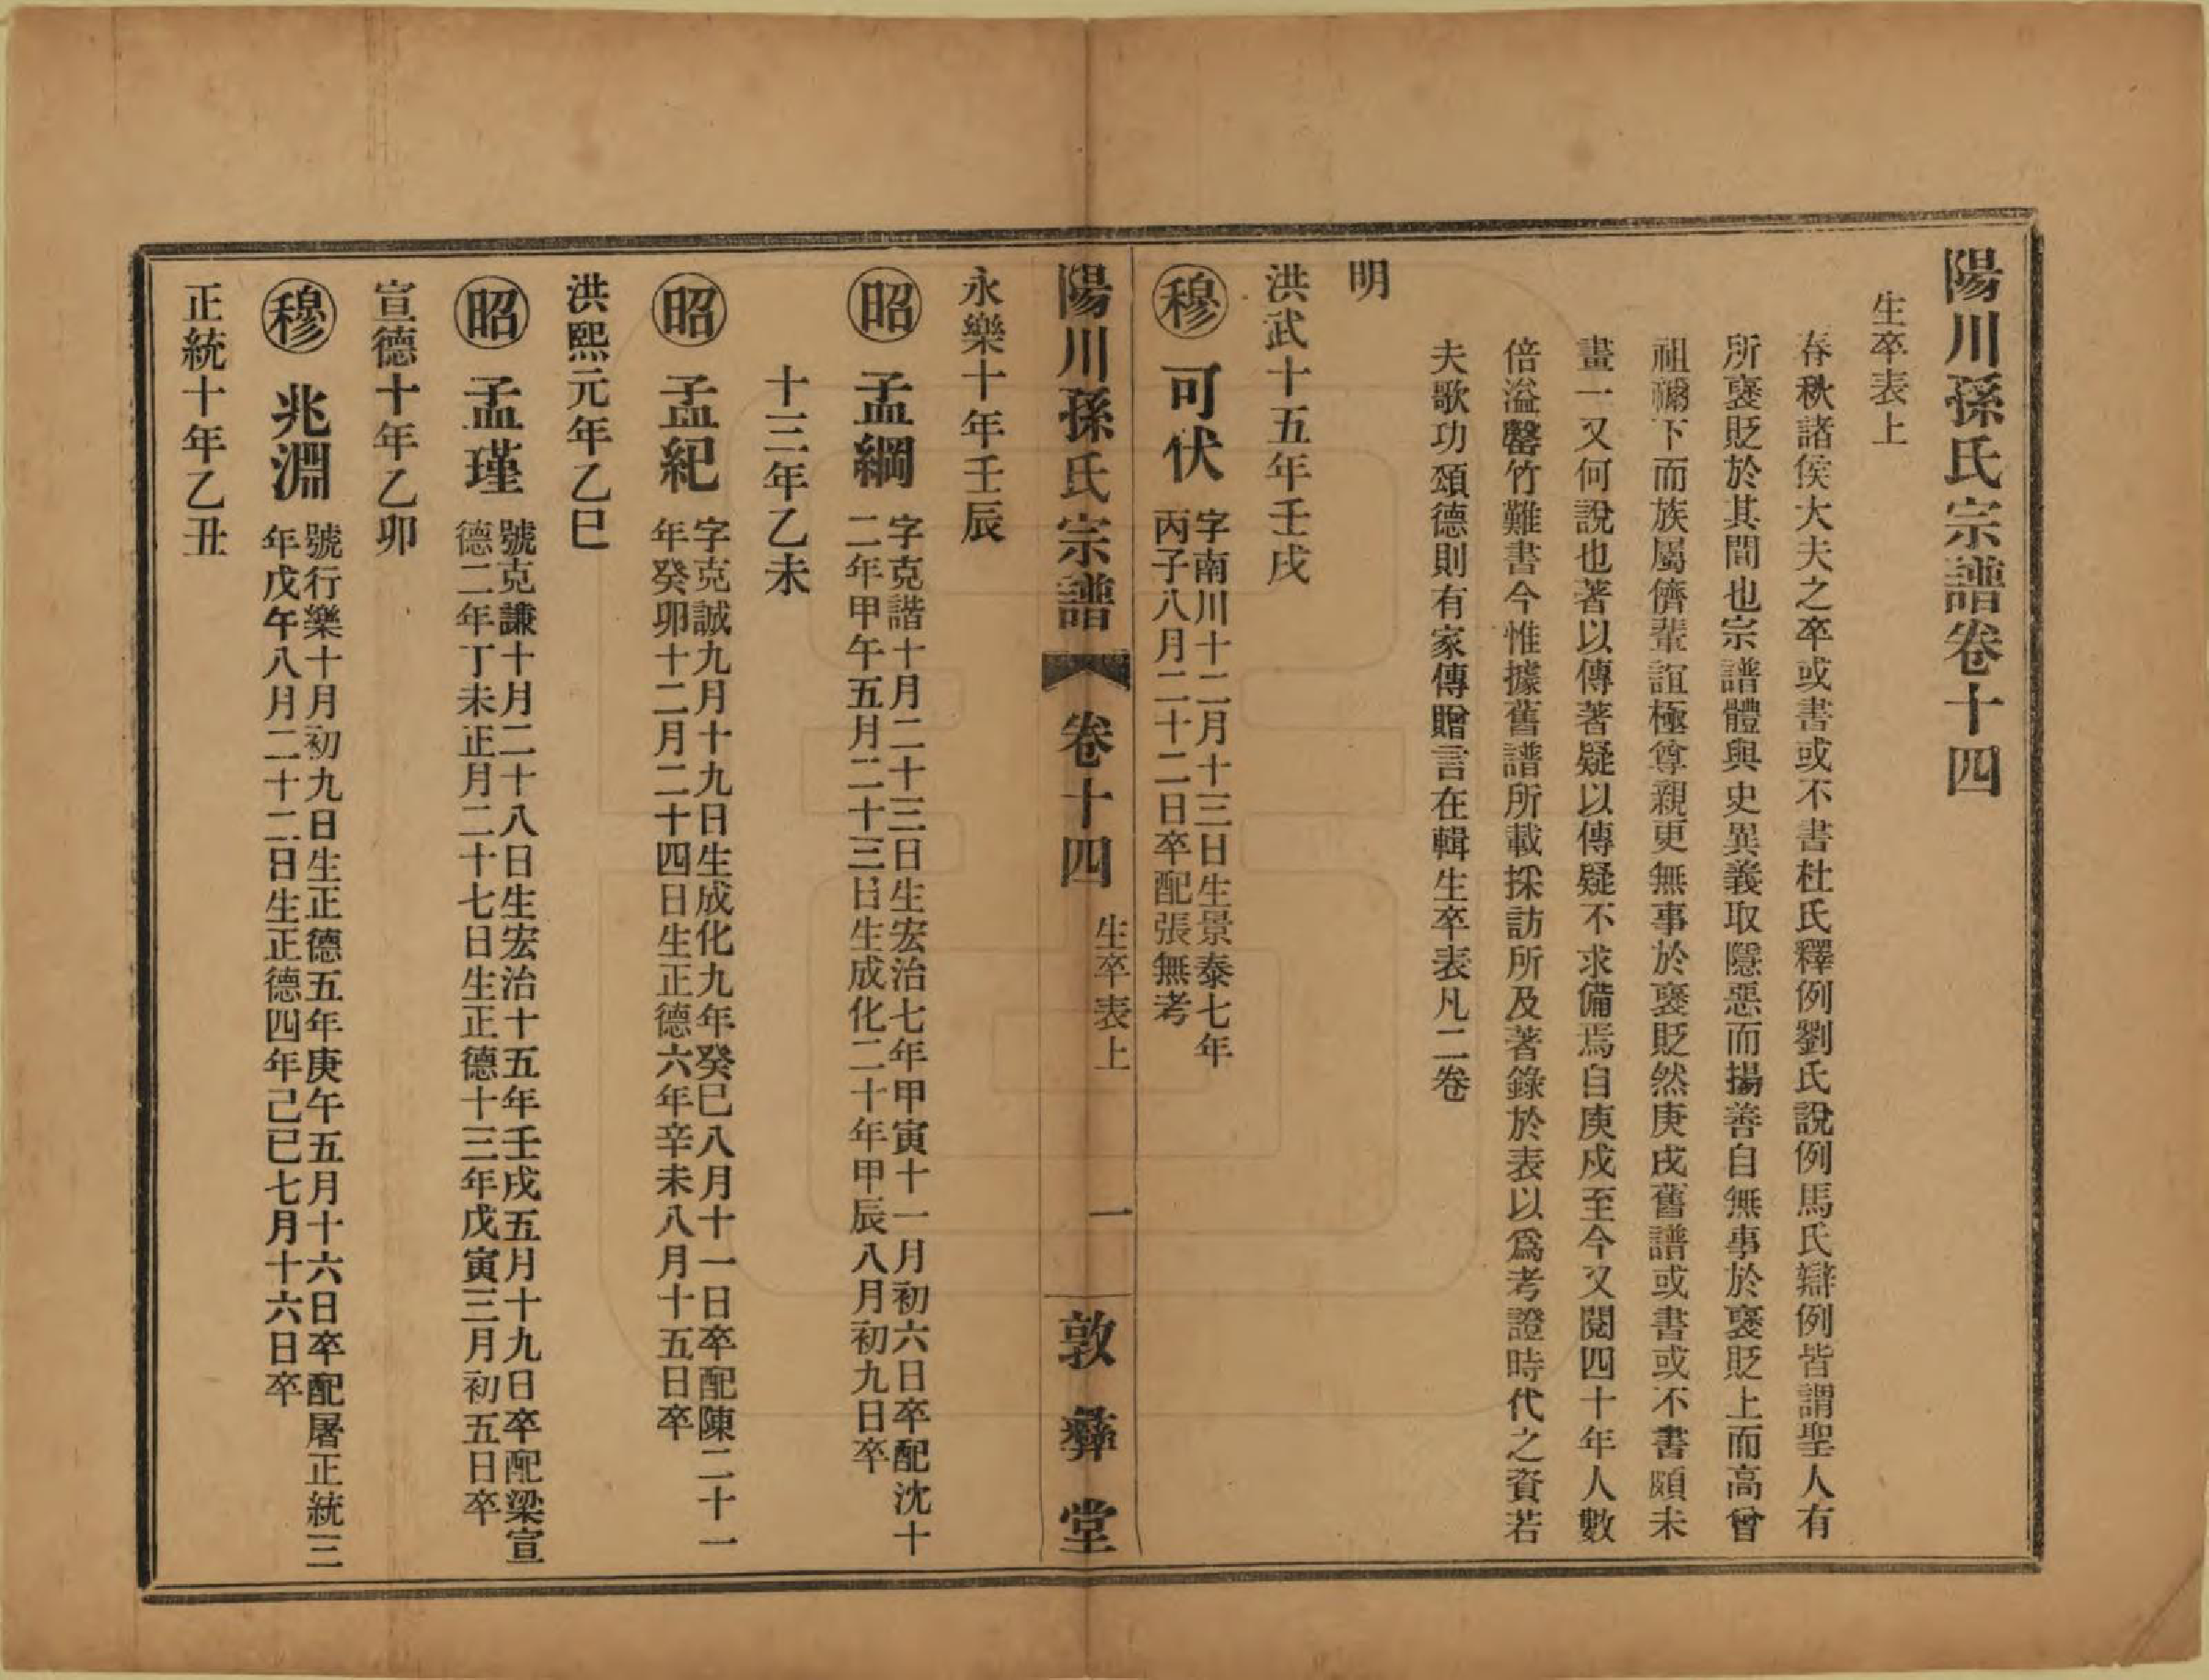 陽川孫氏宗譜卷十四
生卒表上
春秋諸侯大夫之卒或書或不書杜氏釋例劉氏說例馬氏辯例皆謂聖人有
所襃貶於其間也宗譜體與史異義取隱惡而揚善自無事於襃貶上而高曾
祖禰下而族屬儕輩誼極尊親更無事於襃貶然庚戌舊譜或書或不書頗未
畫一又何說也著以傳著疑以傳疑不求備焉自庚戌至今又閱四十年人數
倍溢罄竹難書今惟據舊譜所載採訪所及著錄於表以爲考證時代之資若
夫歌功頌德則有家傳贈言在輯生卒表凡二卷
明
洪武十五年壬戌
穆 可伏 字南川十二月十三日生景泰七年
丙子八月二十二日卒配張無考
陽川孫氏宗譜 卷十四 生卒表上 一 敦彝堂
永樂十年壬辰
昭 孟綱 字克諧十月二十三日生宏治七年甲寅十一月初六日卒配沈十
二年甲午五月二十三日生成化二十年甲辰八月初九日卒
十三年乙未
昭 孟紀 字克誠九月十九日生成化九年癸巳八月十一日卒配陳二十一
年癸卯十二月二十四日生正德六年辛未八月十五日卒
洪熙元年乙巳
昭 孟瑾 號克謙十月二十八日生宏治十五年壬戌五月十九日卒配梁宣
德二年丁未正月二十七日生正德十三年戊寅三月初五日卒
宣德十年乙卯
穆 兆淵 號行樂十月初九日生正德五年庚午五月十六日卒配屠正統三
年戊午八月二十二日生正德四年己巳七月十六日卒
正統十年乙丑